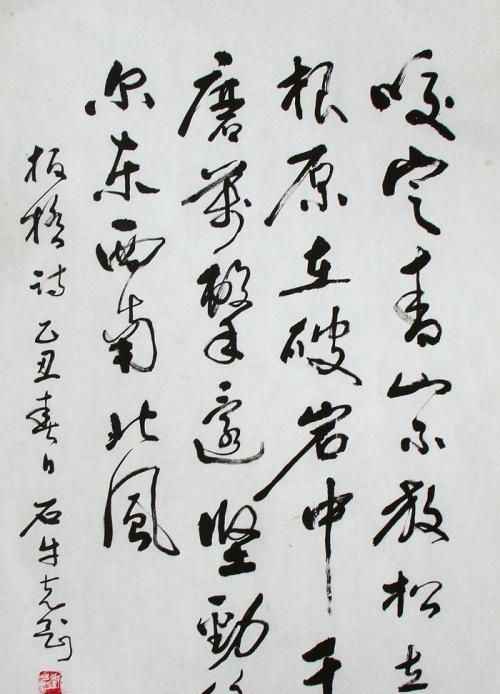 咬定青山不放松立
根原在破岩中千
磨萬擊還堅勁
尔东西南北風
板桥诗 乙丑春日 石牛